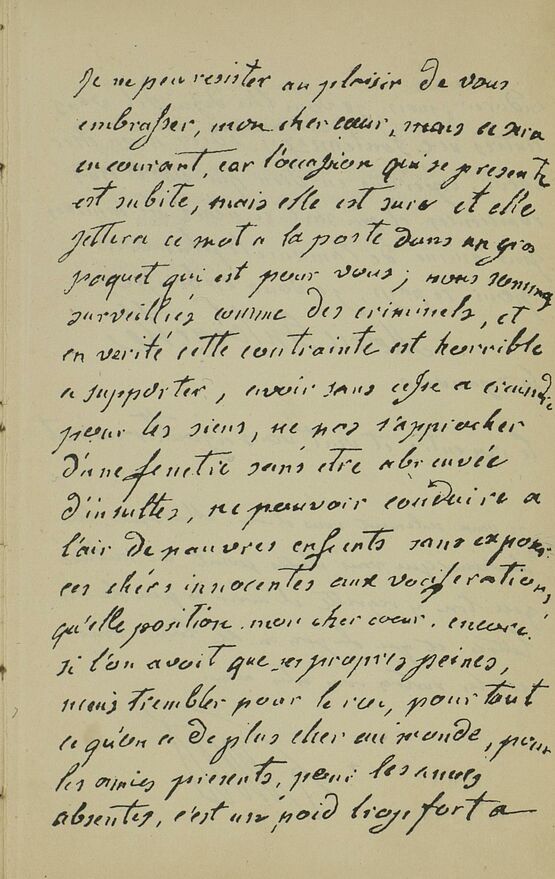 Je ne peu resister au plaisir de vous
embrasser, mon cher cœur, mais ce sera
en courant, car l'occassion qui se presente
est subite, mais elle est sure et elle
jettera ce mot a la poste dans un gros
paquet qui est pour vous; nous sommes
surveilliés comme des criminels, et
en verité cette contrainte est horrible
a supporter, avoir sans cesse a craindre
pour les siens, ne pas s'approcher
d'une fenetre sans etre abreuvée
d'insultes, ne pouvoir conduire a
l'air de pauvres enfents sans exposer
ces chèrs innocentes aux vociferations,
qu'elle position, mon cher cœur. encore
si l'on avoit que ses propres peines,
mais trembler pour le roi, pour tout
ce qu'on a de plus cher au monde, pour
les amies presents, pour les amies
absentes, c'est un poid trop fort a